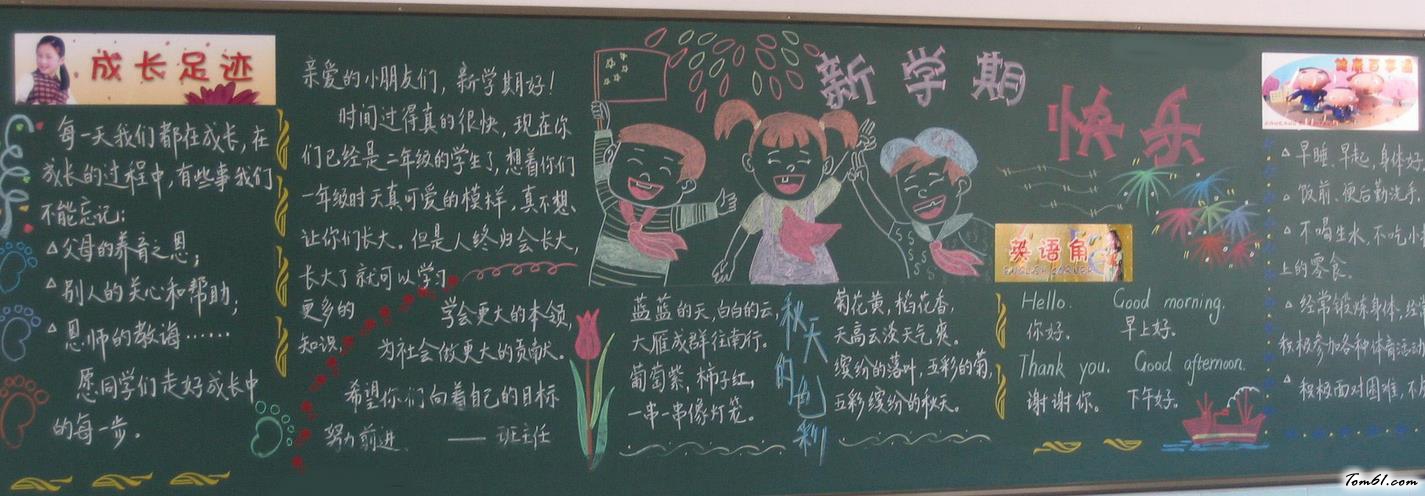 成长足迹
每一天我们都在成长，在
成长的过程中，有些事我们
不能忘记：
△父母的养育之恩；
△别人的关心和帮助，
△恩师的教诲……
愿同学们走好成长中
的每一步。
亲爱的小朋友们，新学期好！
时间过得真的很快，现在你
们已经是二年级的学生了，想着你们
一年级时天真可爱的模样，真不想
让你们长大。但是人终归会长大，
长大了就可以学习
更多的
知识，
学会更大的本领，
为社会做更大的贡献。
希望你们向着自己的目标
努力前进
——班主任
新学期
快乐
蓝蓝的天，白白的云，
大雁成群往南行。
葡萄紫，柿子红，
一串一串像灯笼。
秋天的色彩
菊花黄，稻花香，
天高云淡天气爽。
缤纷的落叶，五彩的菊，
五彩缤纷的秋天。
英语角
ENGLISH CORNER
Hello. Good morning.
你好。 早上好。
Thank you. Good afternoon.
谢谢你。 下午好。
健康百事通
△早睡、早起，身体好
△饭前、便后勤洗手
△不喝生水，不吃小
上的零食。
△经常锻炼身体，经
积极参加各种体育活动
△积极面对困难，不
Tom61.com